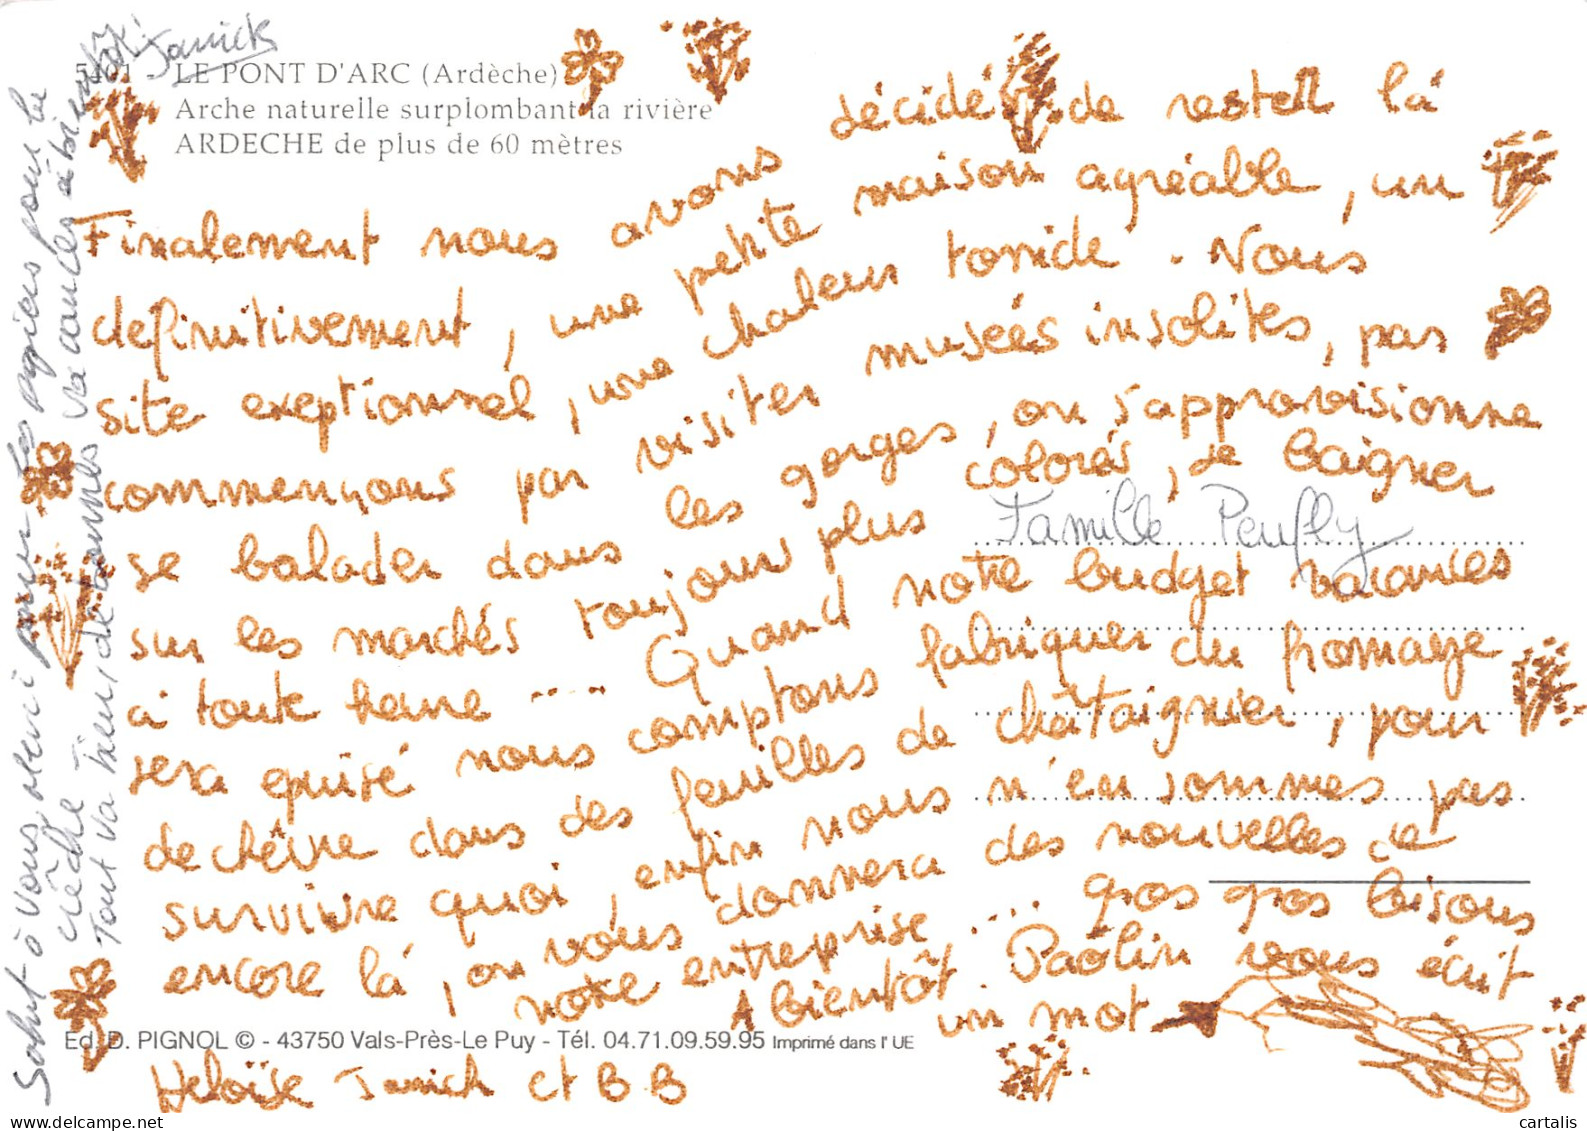 5401 - LE PONT D'ARC (Ardèche)
Arche naturelle surplombant la rivière
ARDECHE de plus de 60 mètres
Finalement nous avons décidé de rester là
définitivement, une petite maison agréable, un
site exeptionnel, une chaleur torride. Nous
commençons par visiter musées insolites, par
se balader dans les gorges, on s'approvisionne
sur les marchés toujours plus colorés, se baigner
à toute heure .... Quand notre budget vacances
sera épuisé nous comptons fabriquer du fromage
de chèvre dans des feuilles de châtaignier, pour
survivre quoi, enfin nous n'en sommes pas
encore là, on vous donnera des nouvelles de
notre entreprise ... gros gros bisous
A bientôt Paolin vous écrit
un mot
Heloïse Janick et B.B
Famille Peufly
Salut à vous, merci pour les papiers pour la
crèche
Tout va bien, de bonnes vacances à bientôt!
Janick
Ed. D. PIGNOL © - 43750 Vals-Près-Le Puy - Tél. 04.71.09.59.95 Imprimé dans l' UE
www.delcampe.net
cartalis